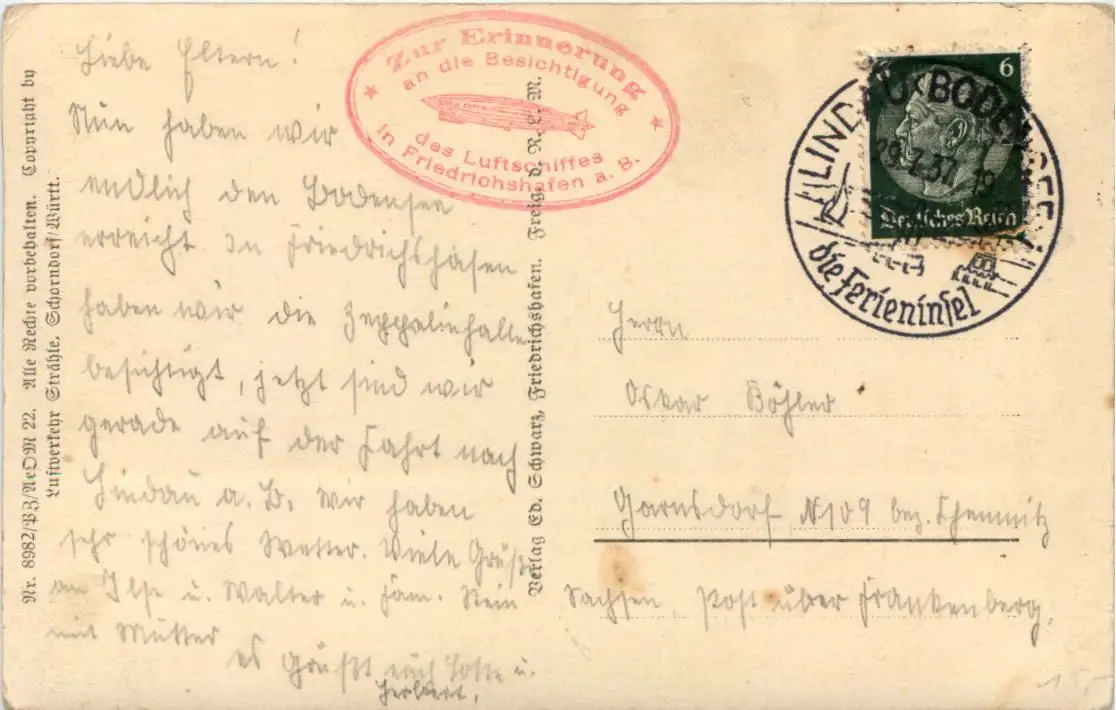 Liebe Eltern!
Nun haben wir
endlich den Bodensee
erreicht. In Friedrichshafen
haben wir die Zeppelinhalle
besichtigt, jetzt sind wir
gerade auf der Fahrt nach
Lindau a. B. Wir haben
sehr schönes Wetter. Viele Grüße
an Ilse u. Walter u. Fam. Stein
mit Mutter
es grüßt euch Lotte u.
Herbert.
Zur Erinnerung
an die Besichtigung
des Luftschiffes
in Friedrichshafen a. B.
6
Deutsches Reich
LINDAU BODENSEE
29.7.37. 19
die Ferieninsel
Herrn
Oskar Böhler
Garnsdorf N109 bez. Chemnitz
Sachsen, Post über Frankenberg,
Nr. 8982/PZ/AeDM 22. Alle Rechte vorbehalten. Copyright by
Luftverkehr Strähle, Schorndorf/Württ.
Verlag Ed. Schwarz, Friedrichshafen. Freig. d. R. L. M.
15,-